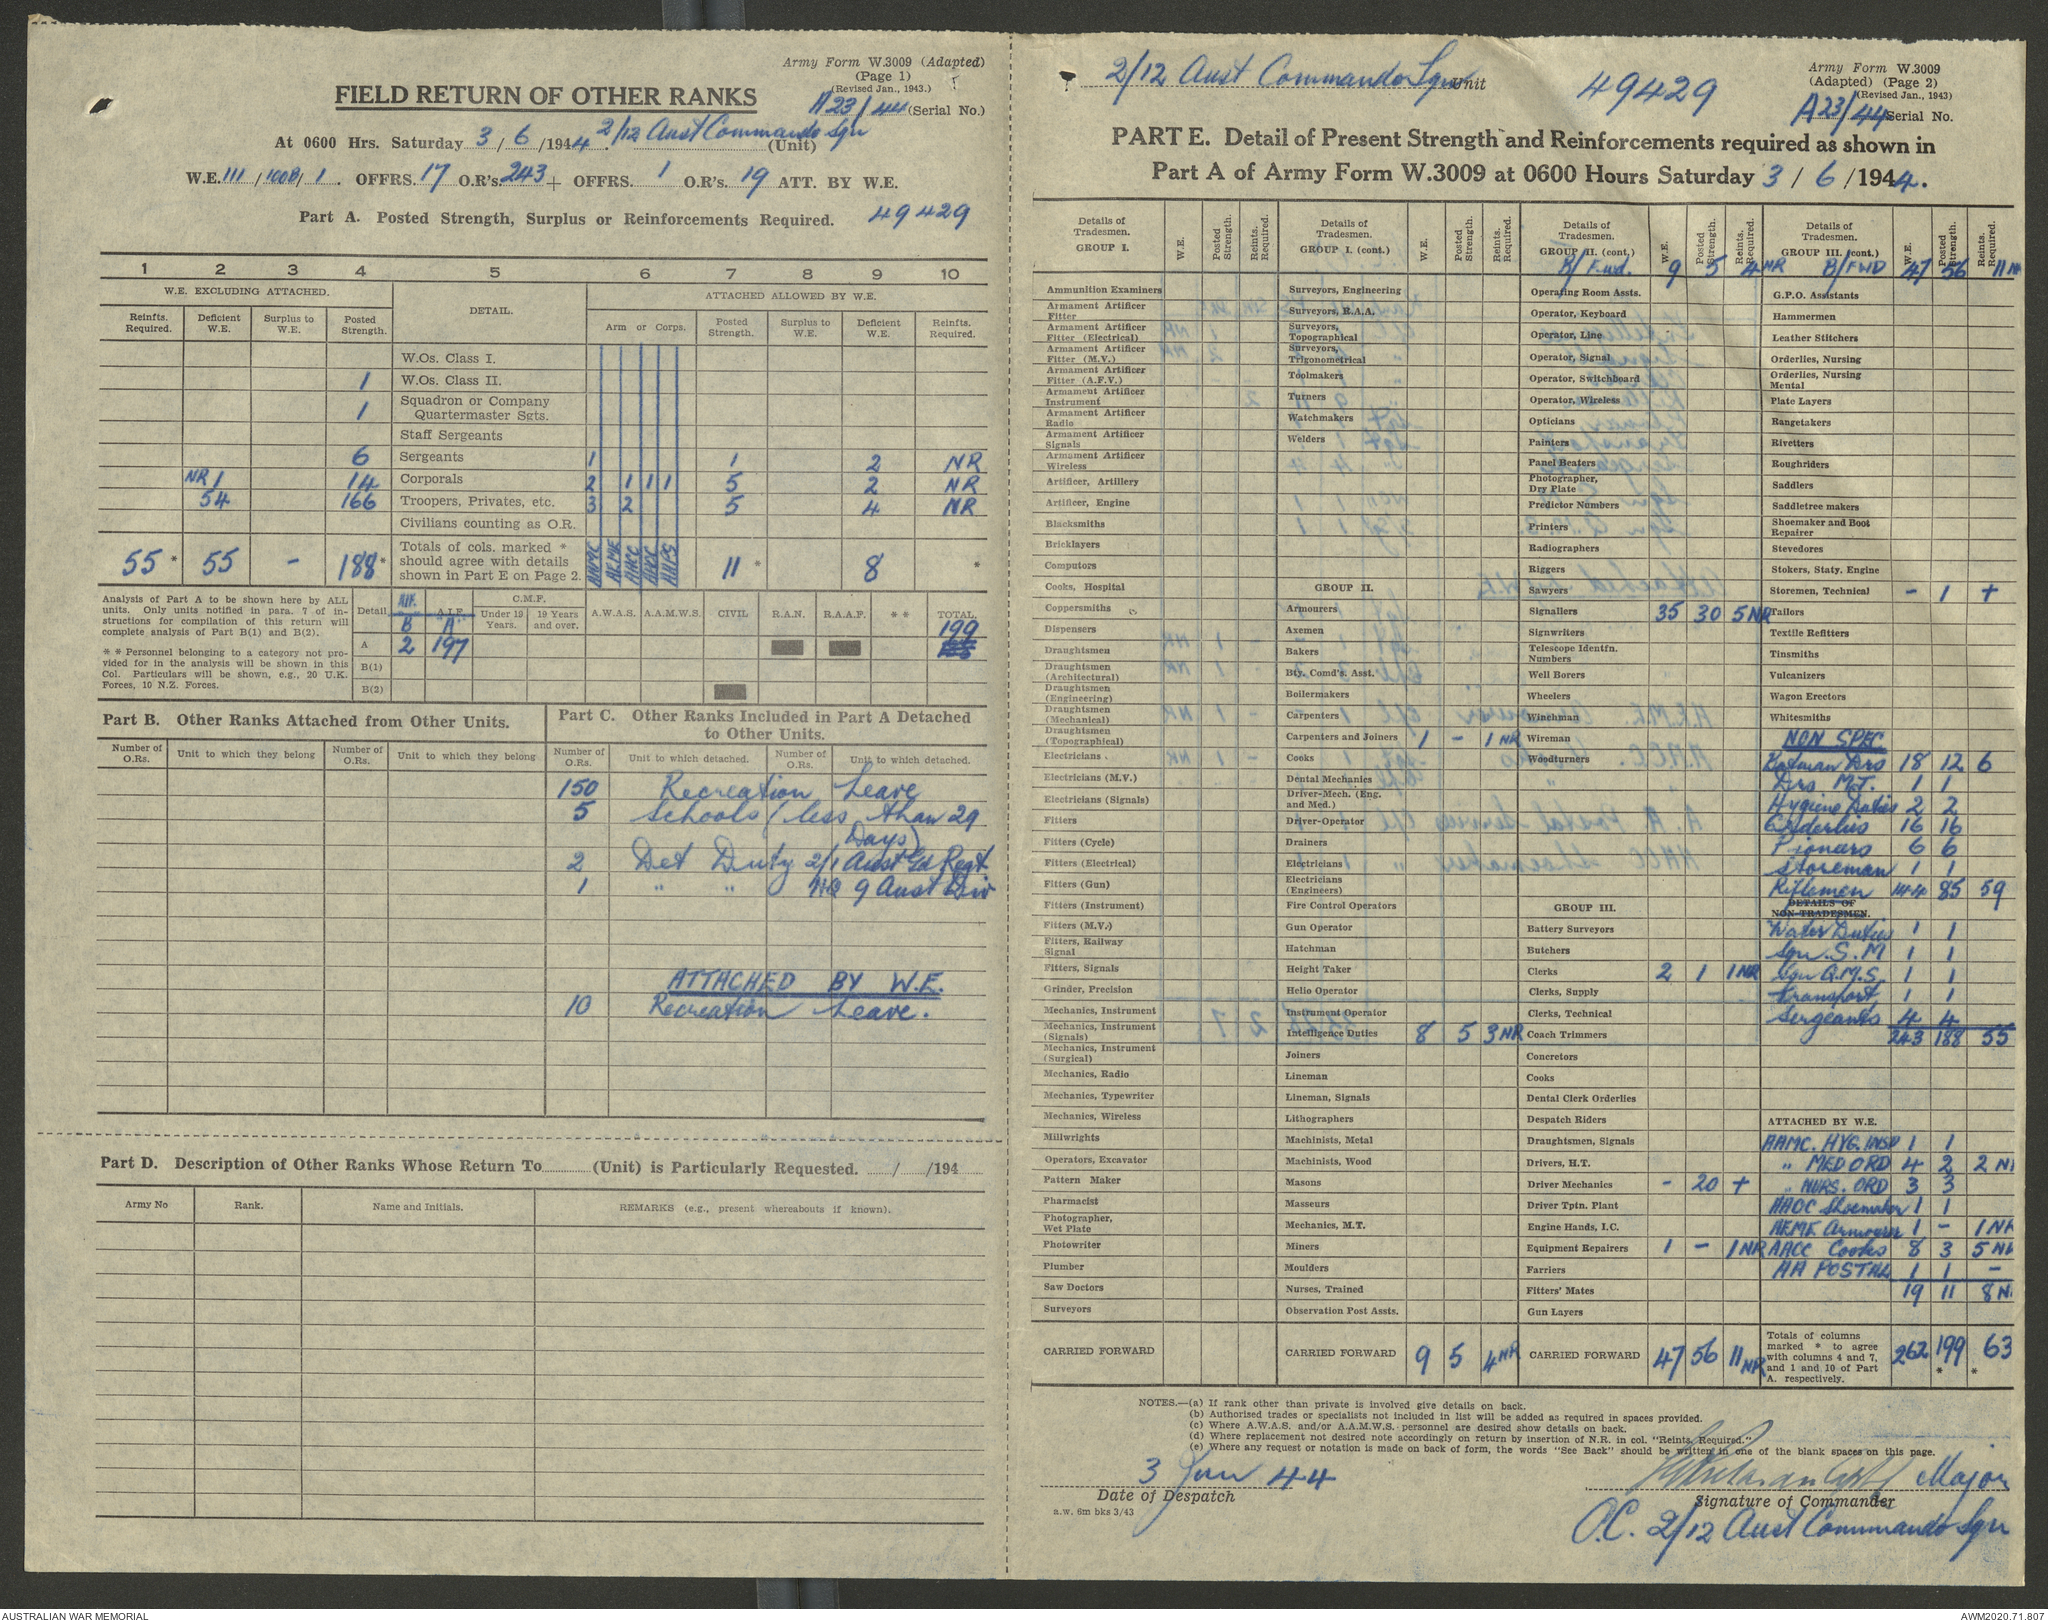 Army Form W.3009 (Adapted)
(Page 1)
(Revised Jan., 1943.)
FIELD RETURN OF OTHER RANKS
A23/44 (Serial No.)
At 0600 Hrs. Saturday 3/6/1944. 2/12 Aust Commando Sqn (Unit)
W.E. 111/100B/1. OFFRS. 17 O.R's. 243 + OFFRS. 1 O.R's. 19 ATT. BY W.E.
Part A. Posted Strength, Surplus or Reinforcements Required. 49429
1 2 3 4 5 6 7 8 9 10
W.E. EXCLUDING ATTACHED. DETAIL. ATTACHED ALLOWED BY W.E.
Reinfts. Required. Deficient W.E. Surplus to W.E. Posted Strength. Arm or Corps. Posted Strength. Surplus to W.E. Deficient W.E. Reinfts. Required.
W.Os. Class I.
1 W.Os. Class II.
1 Squadron or Company Quartermaster Sgts.
Staff Sergeants
6 Sergeants 1 1 2 NR
NR 1 14 Corporals 2 1 1 1 5 2 NR
54 166 Troopers, Privates, etc. 3 2 5 4 NR
Civilians counting as O.R.
55 * 55 - 188 * Totals of cols. marked * should agree with details shown in Part E on Page 2. AAMC AEME AACC AAOC AAPS 11 * 8 *
Analysis of Part A to be shown here by ALL units. Only units notified in para. 7 of instructions for compilation of this return will complete analysis of Part B(1) and B(2).
* * Personnel belonging to a category not provided for in the analysis will be shown in this Col. Particulars will be shown, e.g., 20 U.K. Forces, 10 N.Z. Forces.
Detail A.I.F. B A.I.F. A C.M.F. Under 19 Years. 19 Years and over. A.W.A.S. A.A.M.W.S. CIVIL R.A.N. R.A.A.F. * * TOTAL
199
A 2 197
B(1)
B(2)
Part B. Other Ranks Attached from Other Units.
Number of O.Rs. Unit to which they belong Number of O.Rs. Unit to which they belong
Part C. Other Ranks Included in Part A Detached to Other Units.
Number of O.Rs. Unit to which detached. Number of O.Rs. Unit to which detached.
150 Recreation Leave
5 Schools (less than 29
Days)
2 Det Duty 2/1 Aust Gd Regt.
1 " " HQ 9 Aust Div
ATTACHED BY W.E.
10 Recreation Leave.
Part D. Description of Other Ranks Whose Return To (Unit) is Particularly Requested. / /194
Army No Rank. Name and Initials. REMARKS (e.g., present whereabouts if known).
2/12 Aust Commando Sqn Unit 49429
Army Form W.3009
(Adapted) (Page 2)
(Revised Jan., 1943)
A23/44 Serial No.
PART E. Detail of Present Strength and Reinforcements required as shown in
Part A of Army Form W.3009 at 0600 Hours Saturday 3/6/1944.
Details of Tradesmen. GROUP I. W.E. Posted Strength. Reints. Required.
Ammunition Examiners
Armament Artificer Fitter
Armament Artificer Fitter (Electrical)
Armament Artificer Fitter (M.V.)
Armament Artificer Fitter (A.F.V.)
Armament Artificer Instrument
Armament Artificer Radio
Armament Artificer Signals
Armament Artificer Wireless
Artificer, Artillery
Artificer, Engine
Blacksmiths
Bricklayers
Computors
Cooks, Hospital
Coppersmiths
Dispensers
Draughtsmen
Draughtsmen (Architectural)
Draughtsmen (Engineering)
Draughtsmen (Mechanical)
Draughtsmen (Topographical)
Electricians
Electricians (M.V.)
Electricians (Signals)
Fitters
Fitters (Cycle)
Fitters (Electrical)
Fitters (Gun)
Fitters (Instrument)
Fitters (M.V.)
Fitters, Railway Signal
Fitters, Signals
Grinder, Precision
Mechanics, Instrument
Mechanics, Instrument (Signals)
Mechanics, Instrument (Surgical)
Mechanics, Radio
Mechanics, Typewriter
Mechanics, Wireless
Millwrights
Operators, Excavator
Pattern Maker
Pharmacist
Photographer, Wet Plate
Photowriter
Plumber
Saw Doctors
Surveyors
CARRIED FORWARD
Details of Tradesmen. GROUP I. (cont.) W.E. Posted Strength. Reints. Required.
Surveyors, Engineering
Surveyors, R.A.A.
Surveyors, Topographical
Surveyors, Trigonometrical
Toolmakers
Turners
Watchmakers
Welders
GROUP II.
Armourers
Axemen
Bakers
Bty. Comd's. Asst.
Boilermakers
Carpenters
Carpenters and Joiners 1 - 1 NR
Cooks
Dental Mechanics
Driver-Mech. (Eng. and Med.)
Driver-Operator
Drainers
Electricians
Electricians (Engineers)
Fire Control Operators
Gun Operator
Hatchman
Height Taker
Helio Operator
Instrument Operator
Intelligence Duties 8 5 3 NR
Joiners
Lineman
Lineman, Signals
Lithographers
Machinists, Metal
Machinists, Wood
Masons
Masseurs
Mechanics, M.T.
Miners
Moulders
Nurses, Trained
Observation Post Assts.
CARRIED FORWARD 9 5 4 NR
Details of Tradesmen. GROUP II. (cont.) W.E. Posted Strength. Reints. Required.
B/Fwd. 9 5 4 NR
Operating Room Assts.
Operator, Keyboard
Operator, Line
Operator, Signal
Operator, Switchboard
Operator, Wireless
Opticians
Painters
Panel Beaters
Photographer, Dry Plate
Predictor Numbers
Printers
Radiographers
Riggers
Sawyers
Signallers 35 30 5 NR
Signwriters
Telescope Identfn. Numbers
Well Borers
Wheelers
Winchman
Wireman
Woodturners
GROUP III.
Battery Surveyors
Butchers
Clerks 2 1 1 NR
Clerks, Supply
Clerks, Technical
Coach Trimmers
Concretors
Cooks
Dental Clerk Orderlies
Despatch Riders
Draughtsmen, Signals
Drivers, H.T.
Driver Mechanics - 20 +
Driver Tptn. Plant
Engine Hands, I.C.
Equipment Repairers 1 - 1 NR
Farriers
Fitters' Mates
Gun Layers
CARRIED FORWARD 47 56 11 NR
Details of Tradesmen. GROUP III. (cont.) W.E. Posted Strength. Reints. Required.
B/FWD 47 56 11 NR
G.P.O. Assistants
Hammermen
Leather Stitchers
Orderlies, Nursing
Orderlies, Nursing Mental
Plate Layers
Rangetakers
Rivetters
Roughriders
Saddlers
Saddletree makers
Shoemaker and Boot Repairer
Stevedores
Stokers, Staty. Engine
Storemen, Technical - 1 +
Tailors
Textile Refitters
Tinsmiths
Vulcanizers
Wagon Erectors
Whitesmiths
NON SPEC
Batman Drs 18 12 6
Drs M.T. 1 1
Hygiene Duties 2 2
Orderlies 16 16
Pionars 6 6
Storeman 1 1
Riflemen 144 85 59
DETAILS OF NON-TRADESMEN.
Water Duties 1 1
Sqn S.M 1 1
Sqn Q.M.S. 1 1
Transport 1 1
Sergeants 4 4
243 188 55
ATTACHED BY W.E.
AAMC. HYG. INSP 1 1
" MED ORD 4 2 2 N
" NURS. ORD 3 3
AAOC Shoemaker 1 1
AEME Armourer 1 - 1 NR
AACC Cooks 8 3 5 NR
AA POSTAL 1 1 -
19 11 8 N
Totals of columns marked * to agree with columns 4 and 7, and 1 and 10 of Part A. respectively. 262 199 * 63 *
NOTES.—(a) If rank other than private is involved give details on back.
(b) Authorised trades or specialists not included in list will be added as required in spaces provided.
(c) Where A.W.A.S. and/or A.A.M.W.S. personnel are desired show details on back.
(d) Where replacement not desired note accordingly on return by insertion of N.R. in col. "Reints. Required."
(e) Where any request or notation is made on back of form, the words "See Back" should be written in one of the blank spaces on this page.
3 Jun 44
Date of Despatch
a.w. 6m bks 3/43
Major
Signature of Commander
O.C. 2/12 Aust Commando Sqn
AUSTRALIAN WAR MEMORIAL
AWM2020.71.807